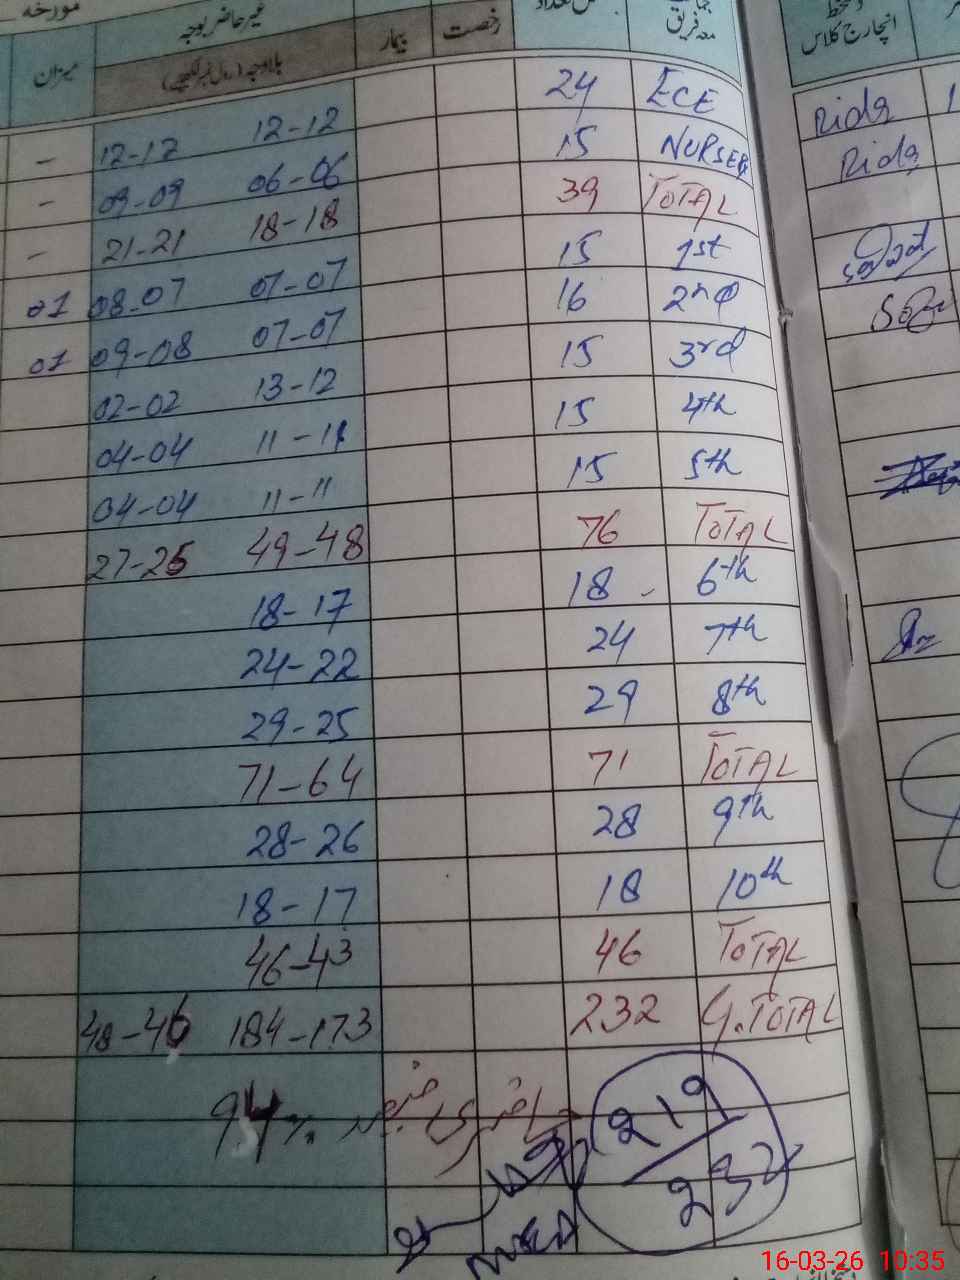 مورخہ
میزان غیر حاضر بوجہ بیمار رخصت تعداد معہ فریق دستخط انچارج کلاس
بلاوجہ (رول نمبر لکھیے)
12-12 12-12 24 ECE Rida
- 09-09 06-06 15 NURSERY Rida
- 21-21 18-18 39 TOTAL
- 08-07 07-07 15 1st
01 09-08 07-07 16 2nd
01 02-02 13-12 15 3rd
04-04 11-11 15 4th
04-04 11-11 15 5th
27-25 49-48 76 TOTAL
18-17 18 6th
24-22 24 7th
29-25 29 8th
71-64 71 TOTAL
28-26 28 9th
18-17 18 10th
46-43 46 TOTAL
48-46 184-173 232 G.TOTAL
94%
219
232
16-03-26 10:35